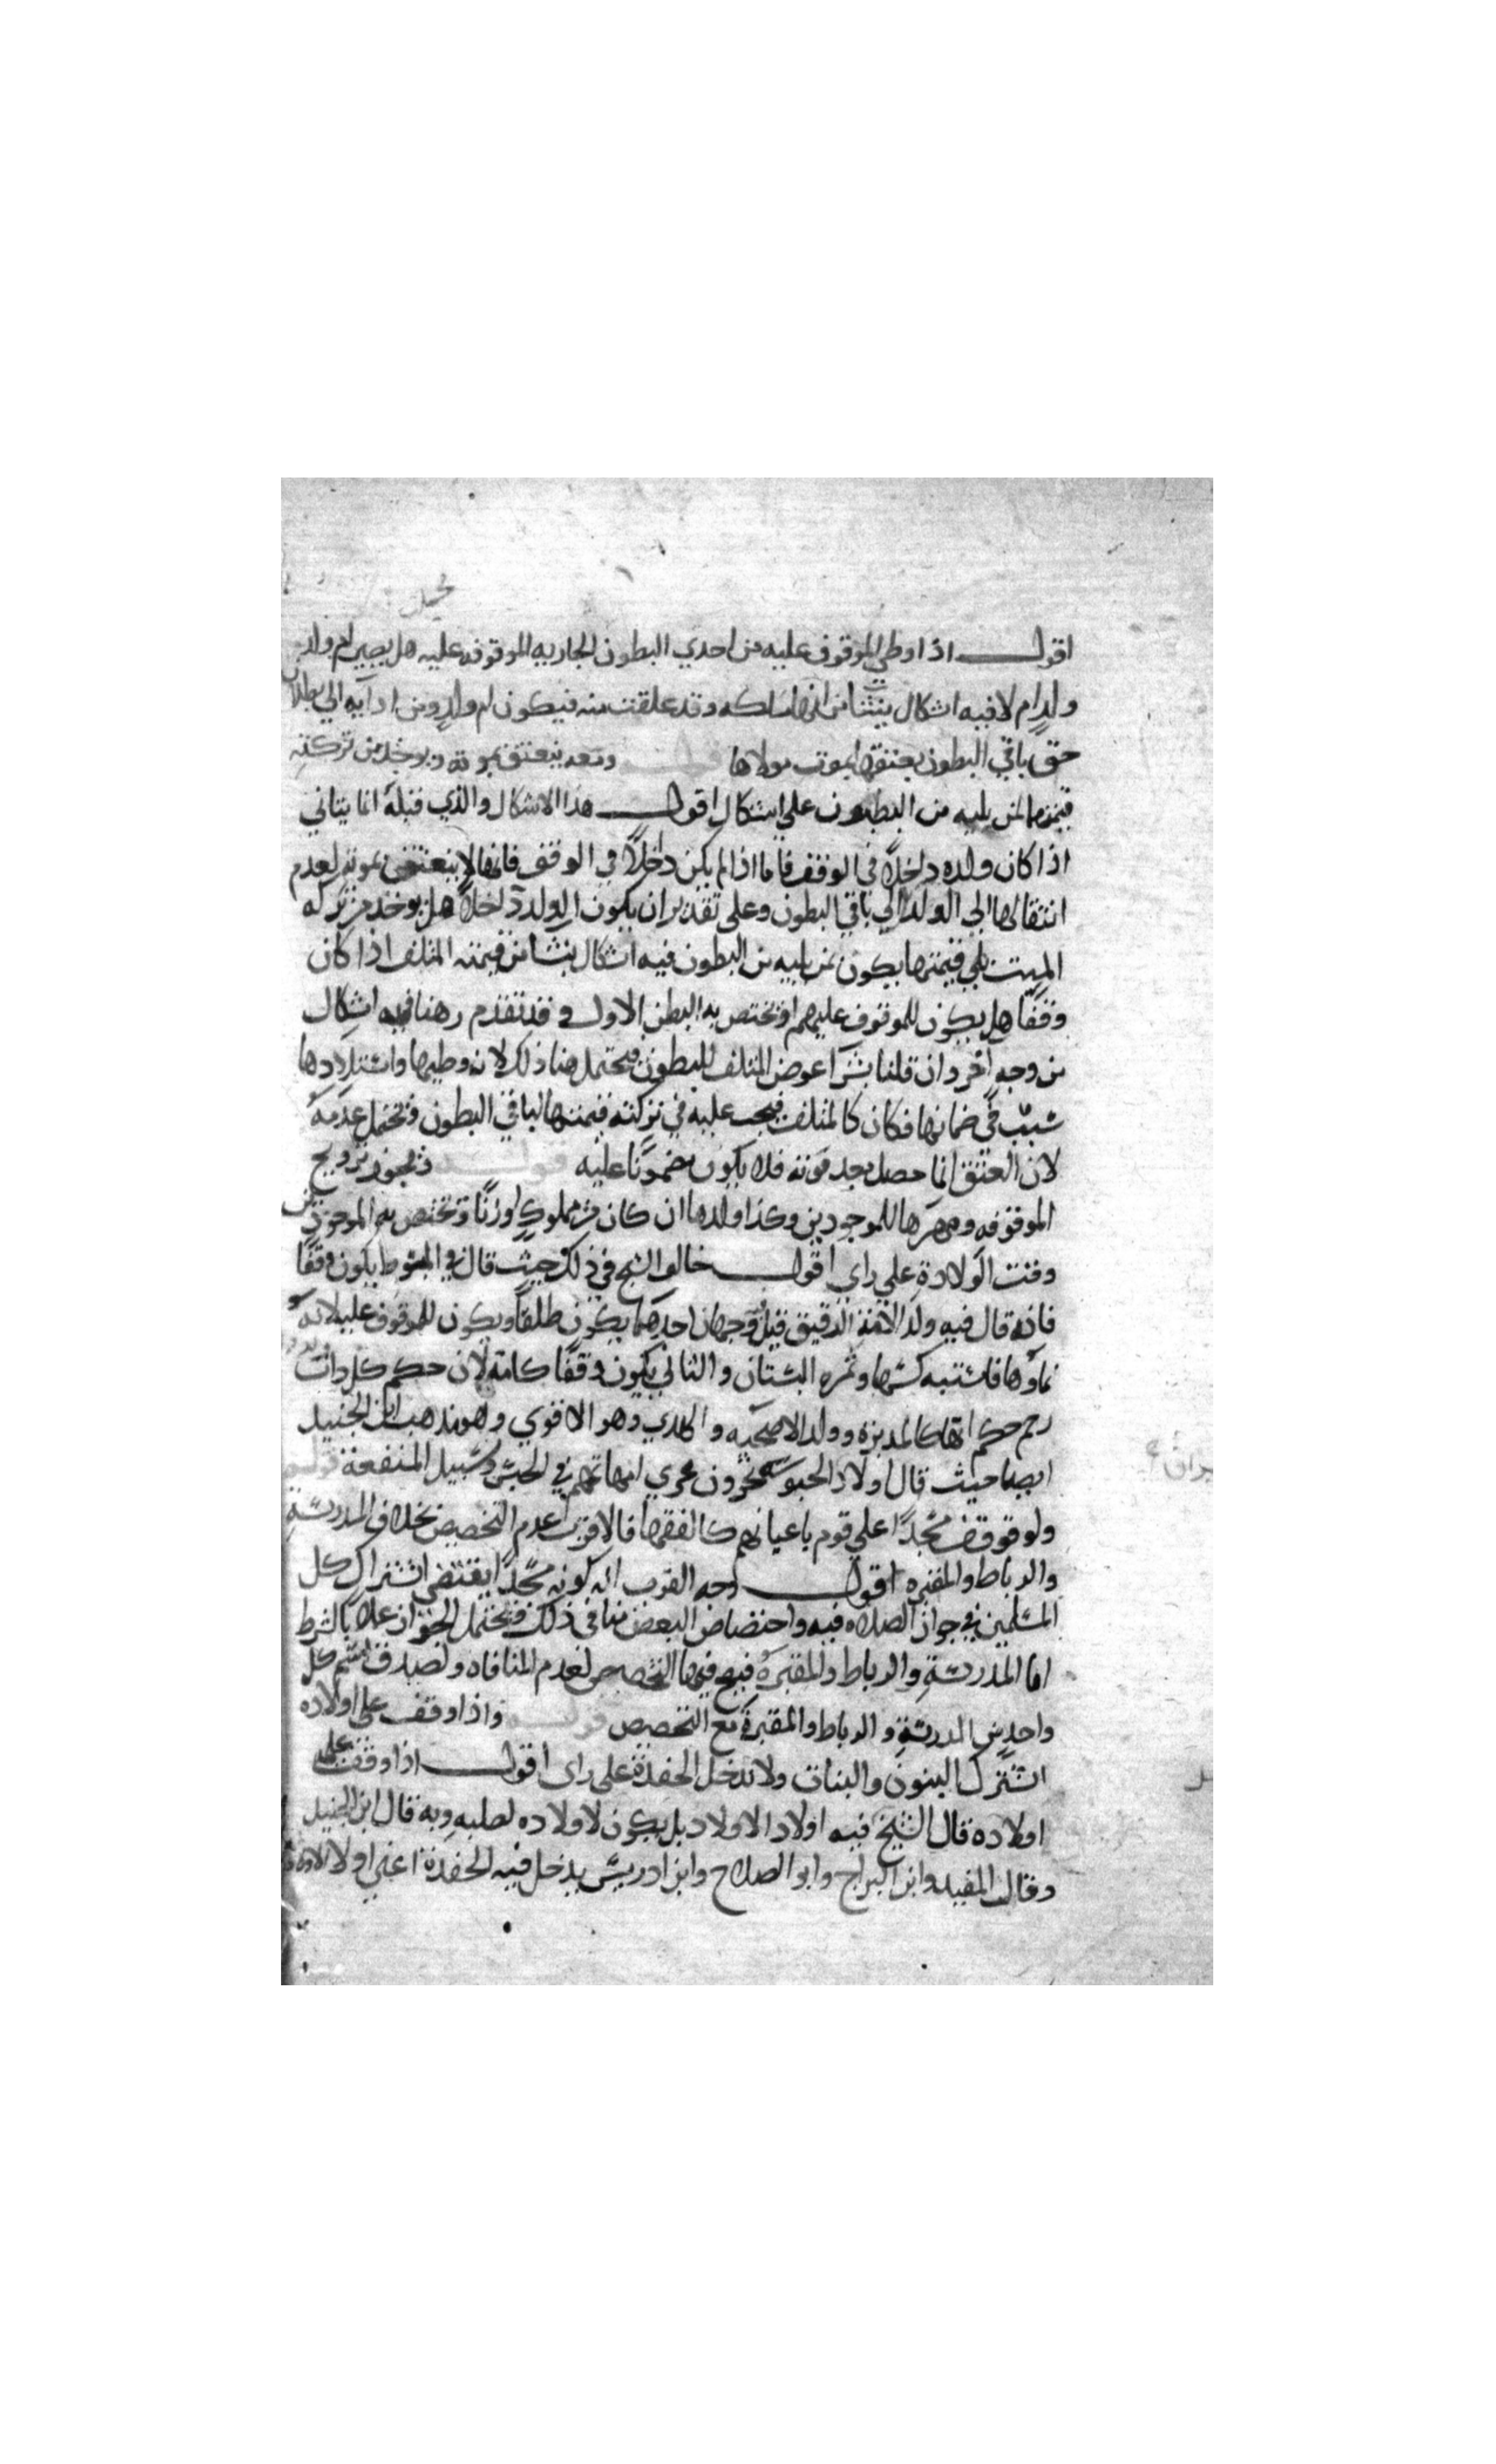 اقول اذا وطي الموقوف عليه من احدي البطون الجاريه الموقوفه عليه هل يصير ام ولد
ولد ام لا فيه اشكال ينشا من انها ملكه وقد علقت منه فيكون ام ولد ومن ادايه الي بطلان
حق باقي البطون بعتقها بموت مولاها قوله ومعه ينعتق بموته ويوخذ من تركته
قيمتها لمن يليه من البطون علي اشكال اقول هذا الاشكال والذي قبله انما يتاتي
اذا كان ولده داخلا في الوقف فاما اذا لم يكن داخلا في الوقف فانها لا ينعتق بموته لعدم
انتقالها الي الولد الي باقي البطون وعلي تقدير ان يكون الولد داخلا هل يوخذ من تركه
الميت يلي قيمتها يكون لمن يليه من البطون فيه اشكال ينشا من قيمته المتلف اذا كان
وقفا هل يكون للموقوف عليهم او يختص به البطن الاول وقد تقدم وهنا فيه اشكال
من وجه اخر وان قلنا بشرا عوض المتلف للبطون فيحتمل هنا ذلك لان وطيها واستلادها
سبب في ضمانها فكان كالمتلف فيجب عليه في تركته قيمتها لباقي البطون ويحتمل عدمه
لان العتق انما حصل بعد موته فلا يكون مضمونا عليه قوله ويجوز تزويج
الموقوفه ومهرها للموجودين وكذا ولدها ان كان من مملوك او زنا ويختص به الموجودين
وقت الولادة علي راي اقول خالف الشيخ في ذلك حيث قال في المبسوط يكون وقفا
فانه قال فيه ولد الامة الرقيق قيل فيه وجهان احدهما يكون طلقا ويكون للموقوف عليه لانه
نماوها فاشتبه كسبها وثمره البستان والثاني يكون وقفا كامه لان حكم كل ذات
رحم حكم امها كالمدبره وولد الاضحيه والهدي وهو الاقوي وهو مذهب ابن الجنيد
ايضا حيث قال اولاد الحبوسه يجرون مجري امهاتهم في الحبس وسبيل المنفعة قوله
ولو وقف مسجدا علي قوم باعيانهم كالفقها فالاقرب عدم التخصيص بخلاف المدرسة
والرباط والمقبره اقول وجه القرب ان كونه مسجدا يقتضي اشتراك كل
المسلمين في جواز الصلاه فيه واختصاص البعض ينافي ذلك ويحتمل الجواز عملا بالشرط
اما المدرسة والرباط والمقبرة فيصح فيها التخصيص لعدم المنافاه ولصدق اسم كل
واحد من المدرسة والرباط والمقبرة مع التخصيص قوله واذا وقف علي اولاده
اشترك البنون والبنات ولا تدخل الحفدة علي راي اقول اذا وقف علي
اولاده قال الشيخ فيه اولاد الاولاد بل يكون لاولاده لصلبه وبه قال ابن الجنيد
وقال المفيد وابن البراج وابو الصلاح وابن ادريس يدخل فيه الحفدة اعني اولاد الاولاد